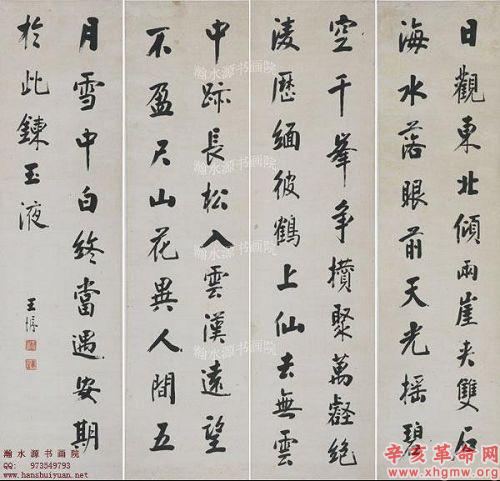 日觀東北傾兩崖夾雙石
海水落眼前天光摇碧
空千峯争攢聚萬壑絶
凌歷緬彼鶴上仙去無雲
中跡長松入雲漢遠望
不盈尺山花異人間五
月雪中白終當遇安期
於此鍊玉液
王
瀚水源书画院
瀚水源书画院
瀚水源书画院
瀚水源书画院
QQ: 973549793
www.hanshuiyuan.net
辛亥革命网
www.xhgmw.org